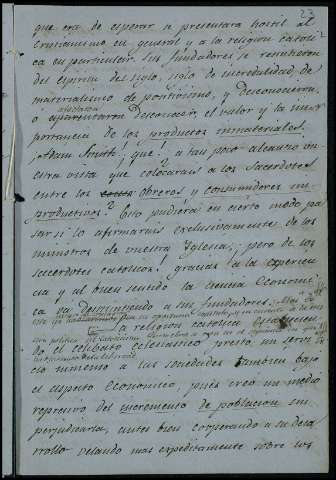 23
que era de esperar se presentara hostil al
cristianismo en general y a la religion catoli-
ca en particular. Sus fundadores se resintieron
del espiritu del siglo, siglo de incredulidad, de
materialismo de positivismo, y desconocieron,
o aparentaron desconocer, el valor y la im-
portancia de los productos inmateriales.
¡Adam Smith! ¡que! a tan poco alcanzó vu-
estra vista que colocarais a los sacerdotes
entre los obreros y consumidores im-
productivos? Eso pudiera en cierto modo pa-
sar si lo afirmarais exclusivamente de los
ministros de vuestra Iglesia; pero de los
sacerdotes catolicos! gracias a la experien-
cia y al buen sentido la ciencia Economi-
ca va desmintiendo a sus fundadores.
la religion catolica establecien-
do el celibato eclesiastico presto un servi-
cio inmenso a las sociedades tambien bajo
el aspecto economico, pues creó un medio
represivo del incremento de poblacion sin
perjudicarla, antes bien cooperando a su desa-
rrollo velando mas expeditamente sobre los